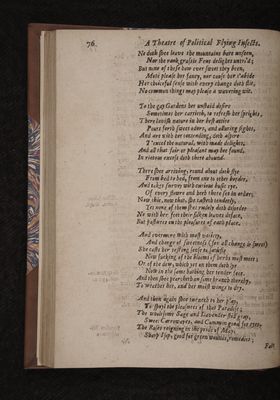 76. A Theatre of Political Flying Insects.
No dath shee leave the mountains bare unseen,
Nor the rank grassie Fens delights untri'd;
But none of these how ever sweet they been,
Mote please her fancy, nor cause her t'abide
Her choiceful sense with every change doth flit,
No common things may please a wavering wit.
To the gay Gardens her unstaid desire
Sometimes her carrieth, to refresh her sprights,
There lavish nature in her best attire
Pours forth sweet odors, and alluring sights,
And arts with her contending, doth aspire
T'excel the natural, with made delights:
And all that fair or pleasant may be found,
In riotous excess doth there abound.
There shee arriving, round about doth flye
From bed to bed, from one to other border,
And takes survey with curious busie eye,
Of every flowre and herb there set in order;
Now this, now that, she tasteth tenderly,
Yet none of them she rudely doth disorder
Ne with her feet their silken leaves deface,
But pastures on the pleasures of each place.
And evermore with most variety,
And change of sweetness (for all change is sweet)
She casts her resting sense to satisfie,
Now sucking of the blooms of herbs most meet;
Or of the dew, which yet on them doth lye
Now in the same bathing her tender feet.
And then shee percheth on some branch thereby,
To weather her, and her moist wings to dry.
And then again shee turneth to her play,
To spoyl the pleasures of that Paradise;
The wholesome Sage and Lavender still gray,
Sweet Carrowayes, and Cummin good for eyes,
The Roses reigning in the pride of May,
Sharp Isop, good for green wounds remedies;